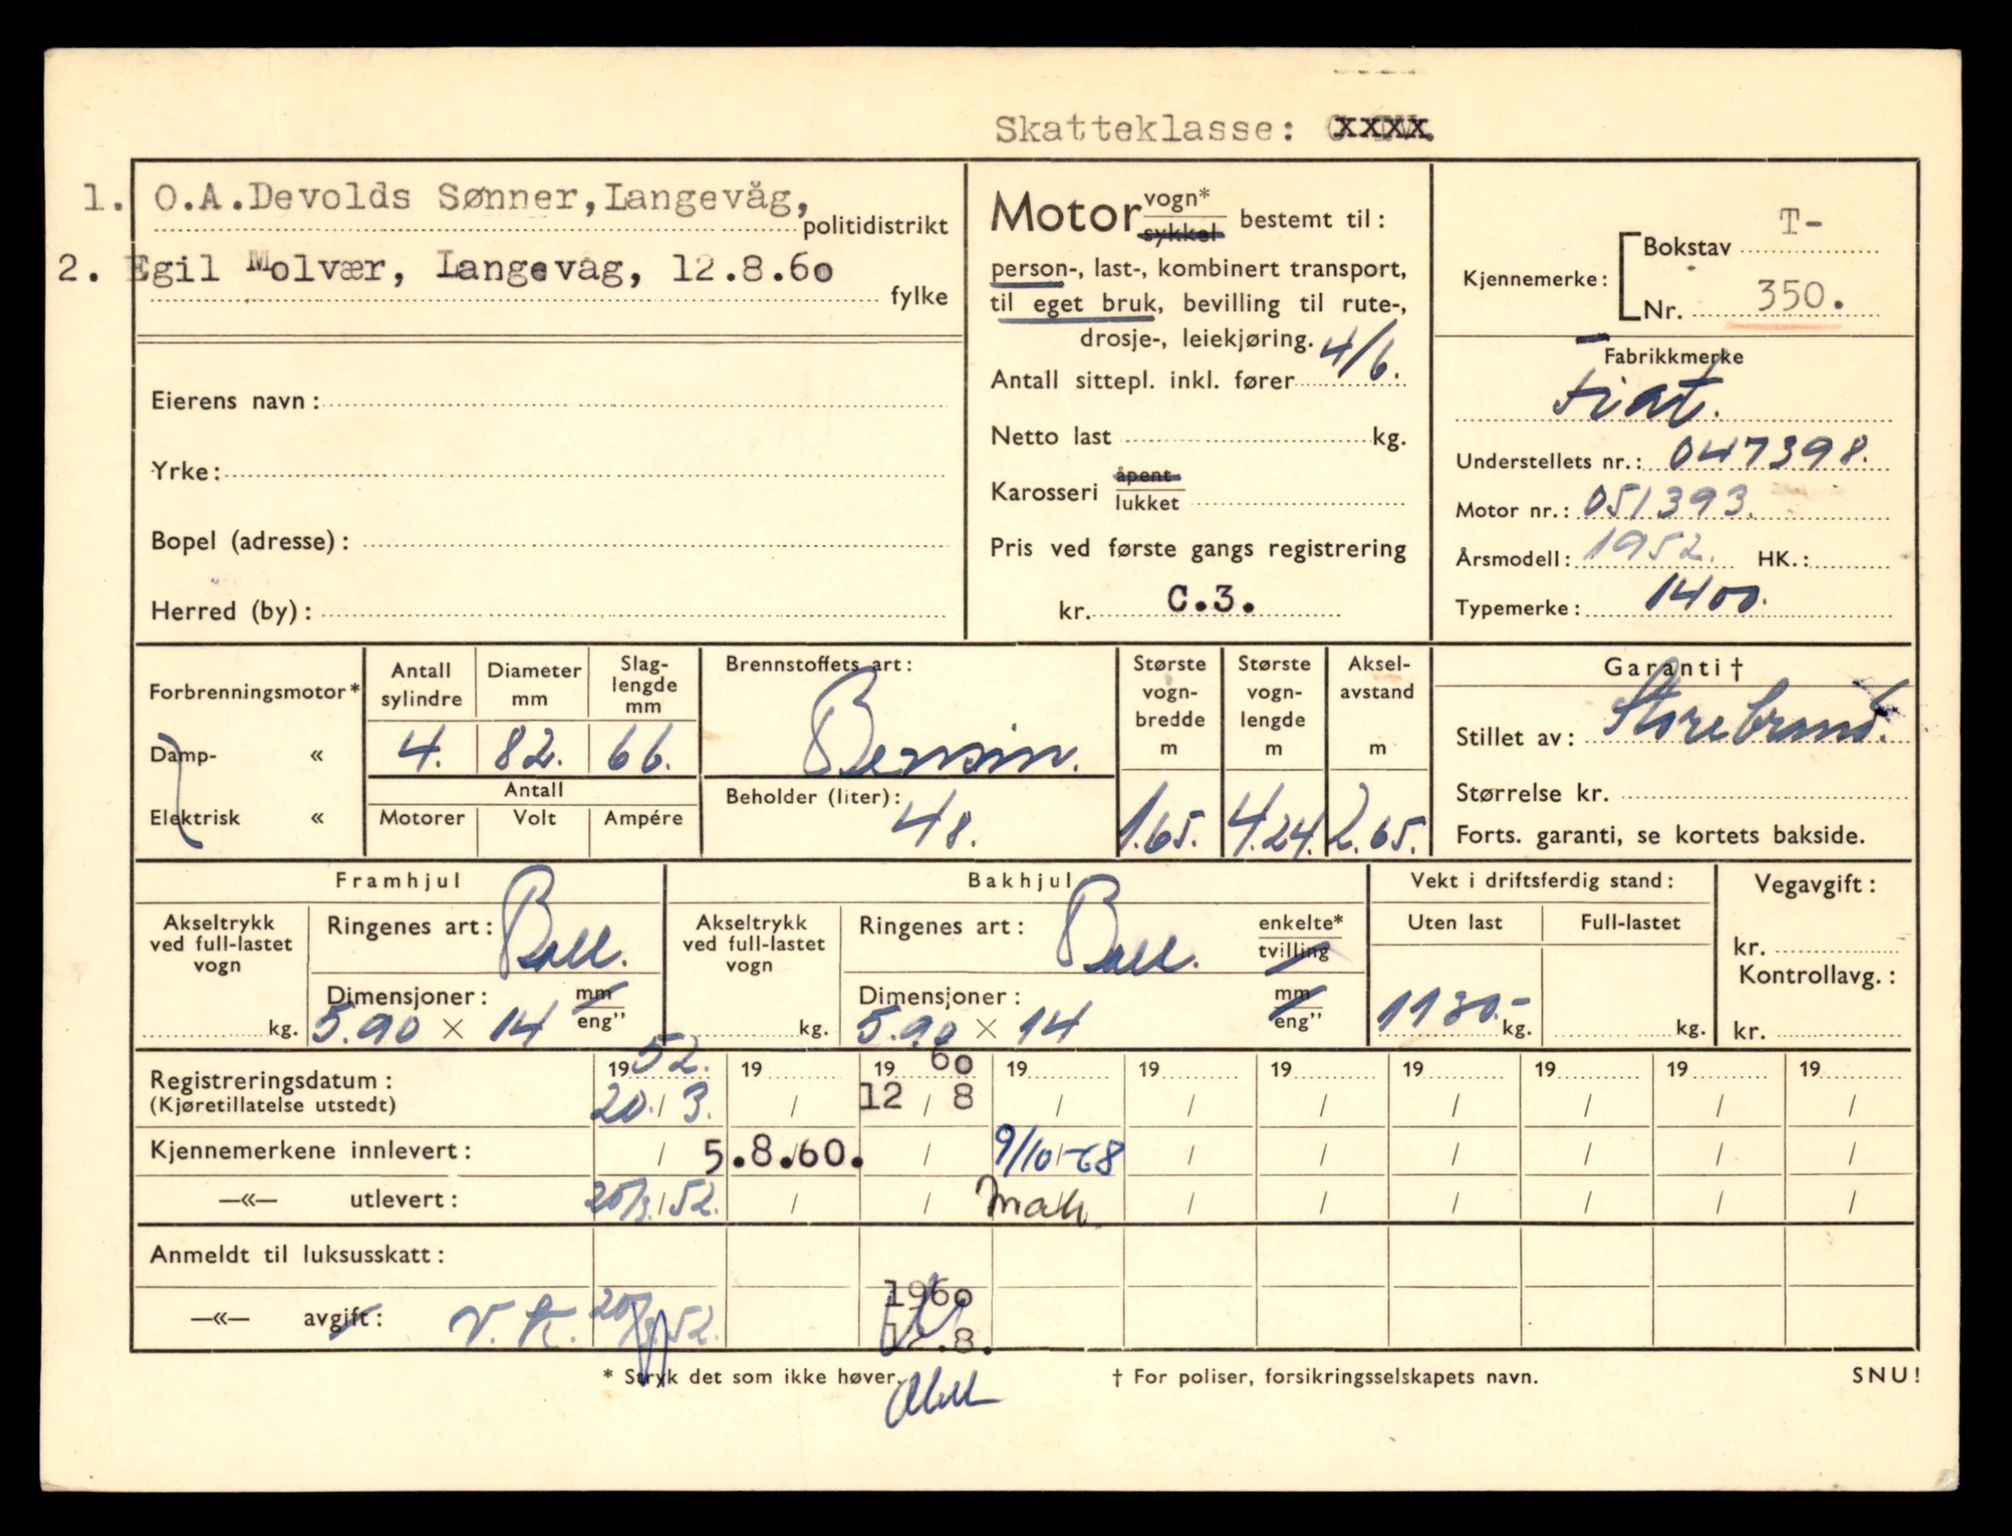 Skatteklasse: xxxx
1. O.A.Devolds Sønner, Langevåg,
politidistrikt
2. Egil Molvær, Langevåg, 12.8.60
fylke
Eierens navn:
Yrke:
Bopel (adresse):
Herred (by):
Motor vogn* sykkel bestemt til:
person-, last-, kombinert transport,
til eget bruk, bevilling til rute-,
drosje-, leiekjøring.
Antall sittepl. inkl. fører 4/6.
Netto last kg.
Karosseri åpent lukket
Pris ved første gangs registrering
kr. C.3.
Kjennemerke: Bokstav T-
Nr. 350.
Fabrikkmerke
Fiat.
Understellets nr.: 047398.
Motor nr.: 051393.
Årsmodell: 1952. HK.:
Typemerke: 1400.
Forbrenningsmotor*
Damp- «
Elektrisk «
Antall sylindre Diameter mm Slag-lengde mm
4. 82. 66.
Antall
Motorer Volt Ampére
Brennstoffets art:
Bensin.
Beholder (liter): 48.
Største vogn-bredde m Største vogn-lengde m Aksel-avstand m
1.65. 4.24. 2.65.
Garanti †
Stillet av: Storebrand.
Størrelse kr.
Forts. garanti, se kortets bakside.
Framhjul
Akseltrykk ved full-lastet vogn
kg.
Ringenes art: Ball.
Dimensjoner: mm eng”
5.90 × 14
Bakhjul
Akseltrykk ved full-lastet vogn
kg.
Ringenes art: Ball. enkelte* tvilling
Dimensjoner: mm eng”
5.90 × 14
Vekt i driftsferdig stand:
Uten last Full-lastet
1130.- kg. kg.
Vegavgift:
kr.
Kontrollavg.:
kr.
Registreringsdatum: 1952. 19 1960 19 19 19 19 19 19 19
(Kjøretillatelse utstedt) 20./3. / 12/8 / / / / / / /
Kjennemerkene innlevert: / 5.8.60. / 9/10-68 / / / / / /
—«— utlevert: 20/3.52. / / / / / / / /
Anmeldt til luksusskatt:
—«— avgift: V.K. 20/3.52. 1960
12.8.
* Stryk det som ikke høver.
† For poliser, forsikringsselskapets navn.
SNU!